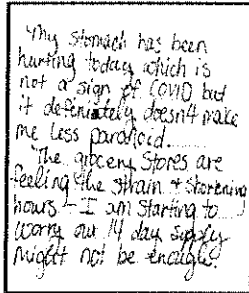 "My stomach has been
hurting today which is
not a sign of COVID but
it definiately doesn't make
me less paranoid.......
"The grocery stores are
feeling the strain + shortening
hours - I am starting to
worry our 14 day supply
might not be enough."